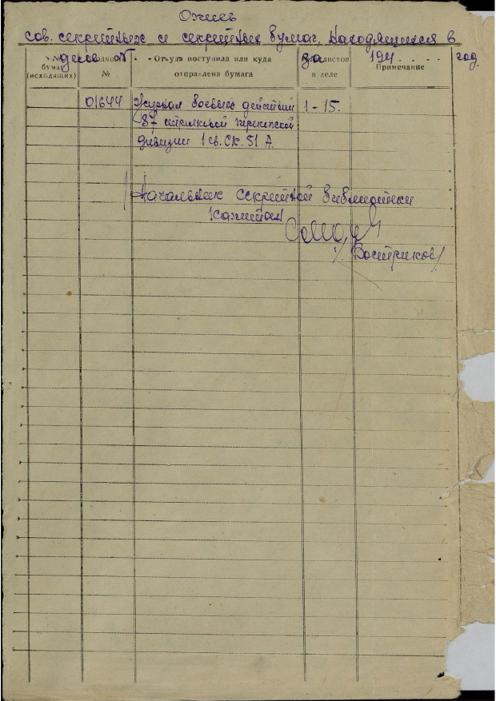 Опись
сов. секретных и секретных бумаг, находящихся в
деле № за 194 . . . . год.
бумаг (исходящих)
№
Откуда поступила или куда отправлена бумага
листов в деле
Примечание
01644 Журнал боевых действий 1-15.
87 стрелковой перекопской
дивизии 1 гв. СК. 51 А.
Начальник секретной библиотеки
капитан
/Востриков/